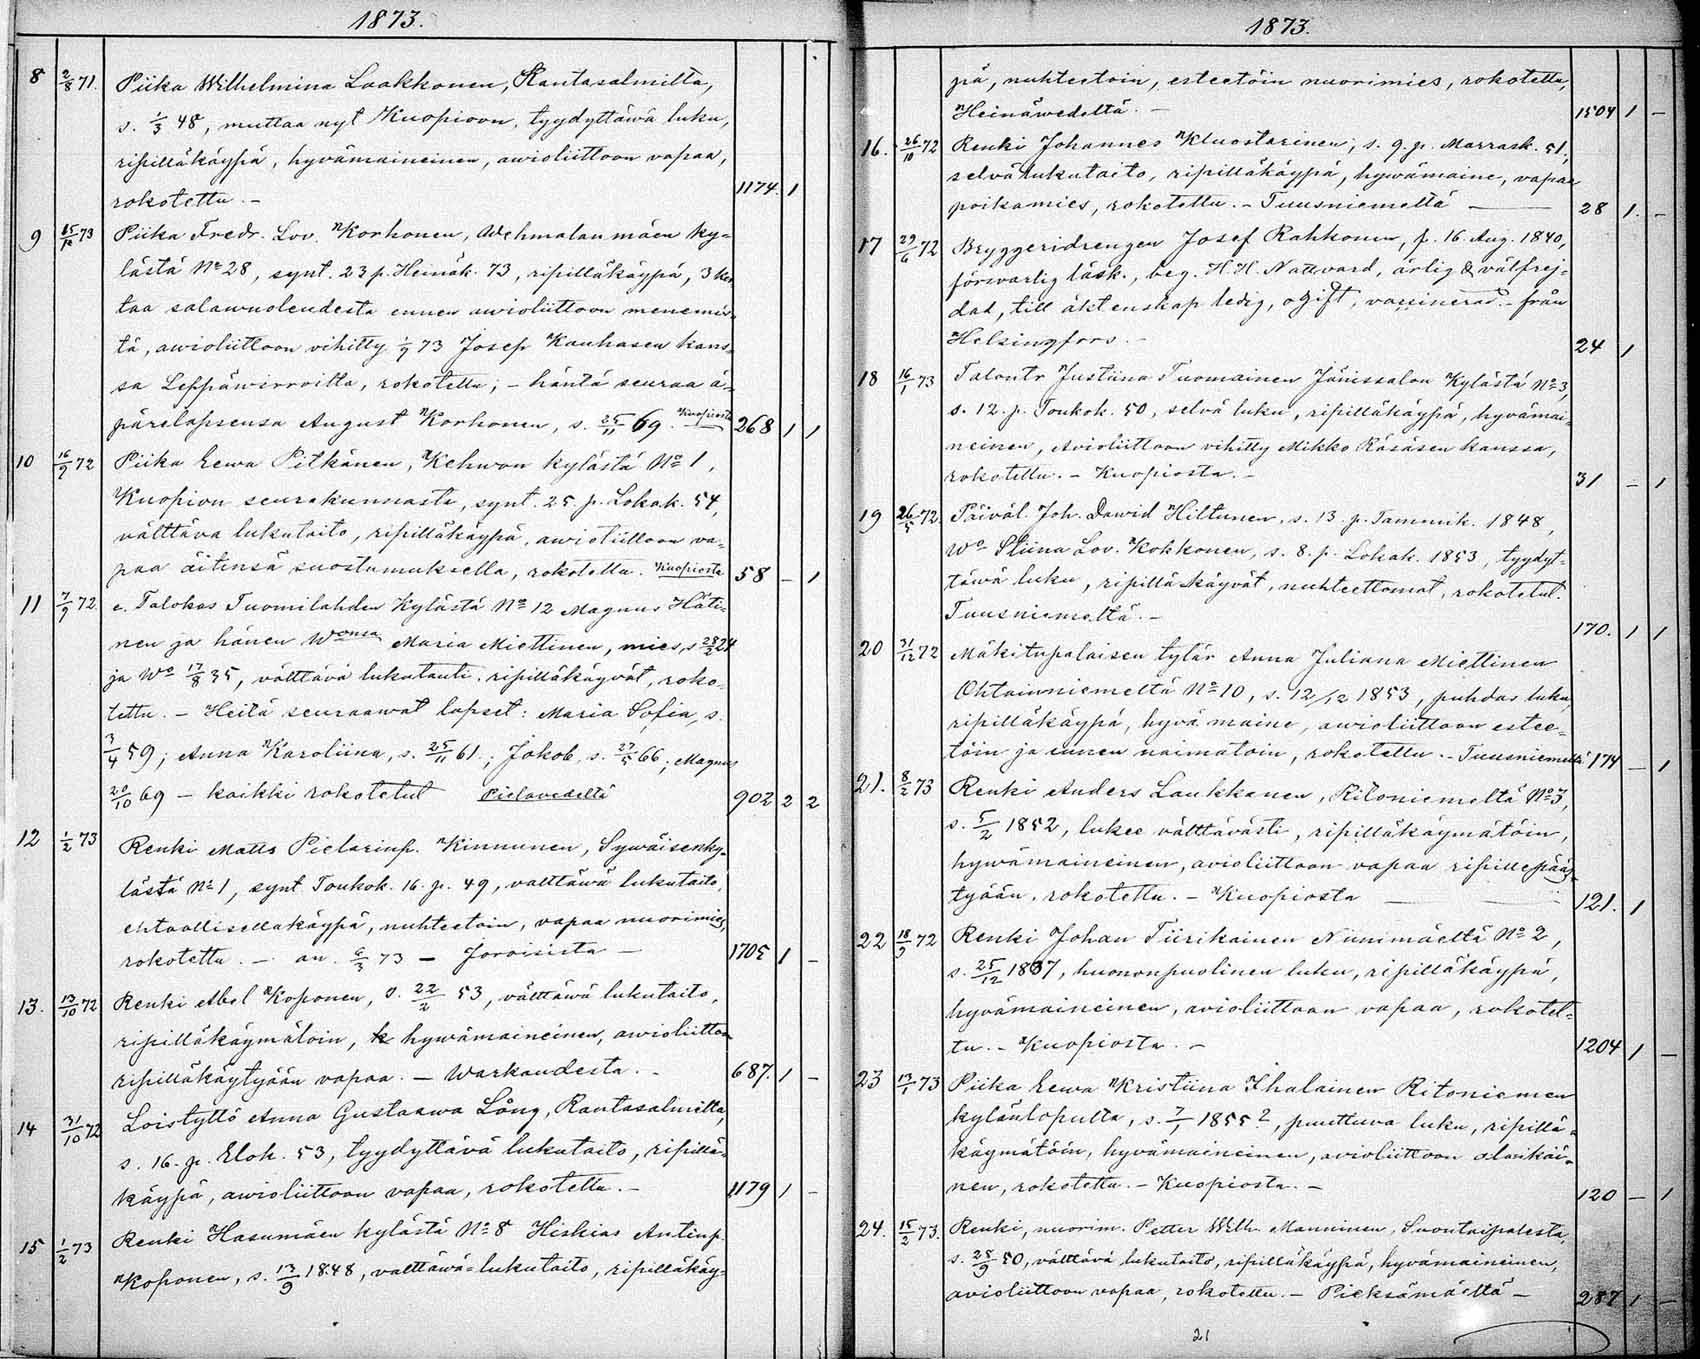 1873.
8 2/8 71. Piika Wilhelmina Laakkonen, Rantasalmilta,
s. 1/3 48, muttaa nyt Kuopioon, tyydyttäwä luku,
ripilläkäypä, hyvämaineinen, awioliittoon vapaa,
rokotettu. – 1174. 1
9 73 Piika Fredr. Lov. Korhonen, Wehmalan mäen ky-
lästä No 28, synt. 23 p. Heinäk. 73, ripilläkäypä, 3 ker
taa salawuoteudesta ennen awioliittoon menemis-
tä, awioliittoon vihitty 73 Josep Kauhasen kans-
sa Leppäwirroilta, rokotettu; – häntä seuraa ä-
pärelapsensa August Korhonen, s. 25/11 69. Kuopiosta 268 1 1
10 16/9 72 Piika Eewa Pitkänen, Kehwon kylästä No 1,
Kuopion seurakunnasta, synt. 25 p. Lokak. 54,
välttäva lukutaito, ripilläkäypä, awioliittoon va-
paa äitinsä suostumuksella, rokotettu. Kuopiosta 58 – 1
11 7/9 72. e. Talokas Tuomilahden Kylästä No 12 Magnus Häti-
nen ja hänen Wonsa Maria Miettinen, mies, s 24
ja Wo 17/8 35, välttävä lukutaito, ripilläkäyvät, roko-
tettu. – Heitä seuraawat lapset: Maria Sofia, s.
3/4 59; Anna Karoliina, s. 25/11 61.; Jakob, s. 27/5 66; Magnus
20/10 69 – kaikki rokotetut Pielavedeltä 902 2 2
12 1/2 73 Renki Matts Pielarinp. Kinnunen, Sywäisenky-
lästä No 1, synt. Toukok. 16. p. 49, valttäwä lukutaito,
ehtoollisellakäypä, nuhteetoin, vapaa nuorimies,
rokotettu. – an. 6/3 73 – Joroisista – 1705 1 –
13. 13/10 72 Renki Abel Koponen, s. 22/2 53, välttäwä lukutaito,
ripilläkäymätoin, hywämaineinen, awioliittoon
ripilläkäytyään vapaa. – Warkaudesta. – 687. 1 –
14 31/10 72 Loistyttö Anna Gustaawa Lång, Rantasalmilta,
s. 16. p. Elok. 53, tyydyttävä lukutaito, ripillä-
käypä, awioliittoon vapaa, rokotettu. – 1179 1 –
15 1/2 73 Renki Hasumäen kylästä No 8 Hiskias Antinp.
Koponen, s. 13/9 1848, valttäwä-lukutaito, ripilläkäy-
1873.
pä, nuhteetoin, esteetöin nuorimies, rokotettu,
Heinäwedeltä. – 1504 1 –
16. 26/10 72 Renki Johannes Kluostarinen, s. 9. p. Marrask. 51,
selvä lukutaito, ripilläkäypä, hywämaine, vapaa
poikamies, rokotettu. – Tuusniemeltä 28 1. –
17 29/6 72 Bryggeridrengen Josef Rahkonen, f. 16 Aug. 1840,
försvarlig läsk., beg. H. H. Nattvard, ärlig & välfrej-
dad, till äktenskap ledig, ogift, vaccinerad. – från
Helsingfors. – 24 1
18 16/1 73 Talontr Justiina Tuomainen Jänissalon Kylästä No 3,
s. 12. p. Toukok. 50, selvä luku, ripilläkäypä, hyvämai-
neinen, Avioliittoon vihitty Mikko Räsäsen kanssa,
rokotettu. – Kuopiosta. – 31 – 1
19 26/5 72. Päiväl. Joh. Dawid Hiltunen, s. 13. p. Tammik. 1848,
Wo Stiina Lov. Kokkonen, s. 8. p. Lokak. 1853, tyydyt-
täwä luku, ripillä käyvät, nuhteettomat, rokotetut.
Tuusniemeltä. – 170. 1 1
20 31/12 72 Mäkitupalaisen tytär Anna Juliana Miettinen
Ohtainniemeltä No 10, s. 12/12 1853, puhdas luku,
ripilläkäypä, hyvä maine, awioliittoon estee-
töin ja ennen naimatoin, rokotettu. – Tuusniemeltä 174 – 1
21. 8/2 73 Renki Anders Laukkanen, Ritoniemeltä No 3,
s. 5/2 1852, lukee välttävästi, ripilläkäymätöin,
hywämaineinen, avioliittoon vapaa ripillepääs-
tyään, rokotettu. – Kuopiosta 121. 1
22 18/9 72 Renki Johan Tiirikainen Niinimäeltä No 2,
s. 25/12 1837, huononpuolinen luku, ripilläkäypä,
hyvämaineinen, avioliittoon vapaa, rokotet-
tu. – Kuopiosta. – 1204 1 –
23 13/1 73 Piika Eewa Kristiina Ihalainen Ritoniemen
kylänlopulta, s. 7/1 1855?, puuttuva luku, ripillä-
käymätöin, hyvämaineinen, avioliittoon alaikäi-
nen, rokotettu. – Kuopiosta. – 120 – 1
24. 15/2 73. Renki, nuorim. Petter Wilh. Manninen, Suontaipaleesta,
s. 25/9 50, välttävä lukutaito, ripilläkäypä, hyvämaineinen,
avioliittoon vapaa, rokotettu. – Pieksämäeltä – 287 1 –
21